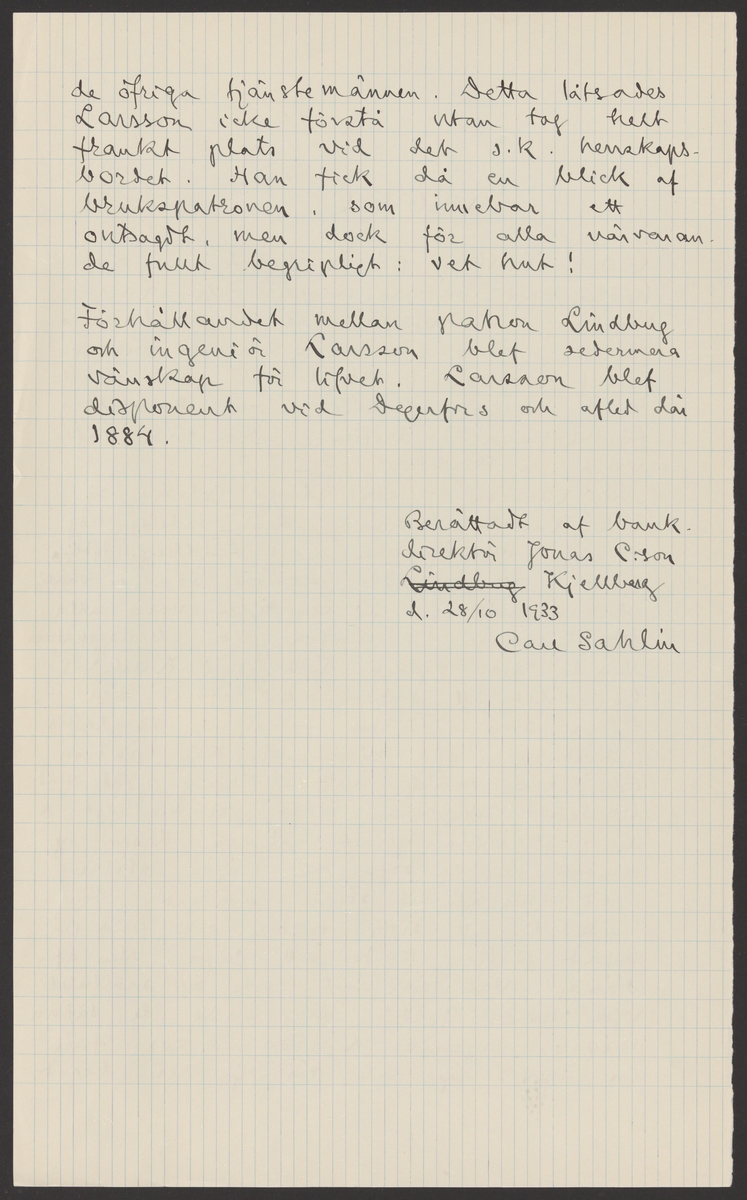 de öfriga tjänstemännen. Detta låtsades
Larsson icke förstå utan tog helt
frankt plats vid det s.k. herrskaps-
bordet. Han fick då en blick af
brukspatronen, som innebar ett
outsagdt, men dock för alla närvaran-
de fullt begripligt: vet hut!
Förhållandet mellan patron Lindberg
och ingeniör Larsson blef sedermera
vänskap för lifvet. Larsson blef
disponent vid Degerfors och afled där
1884.
Berättadt af bank-
direktör Jonas C:son
Lindberg Kjellberg
d. 28/10 1933
Carl Sahlin